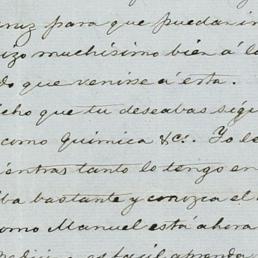 cruz para que puedan in
izo muchísimo bien á la
do que venirse á esta.
icho que tu deseabas segu
como Química &c. Yo le
ientras tanto lo tengo en
ba bastante y conozca el
omo Manuel está ahora
es fácil aprenda